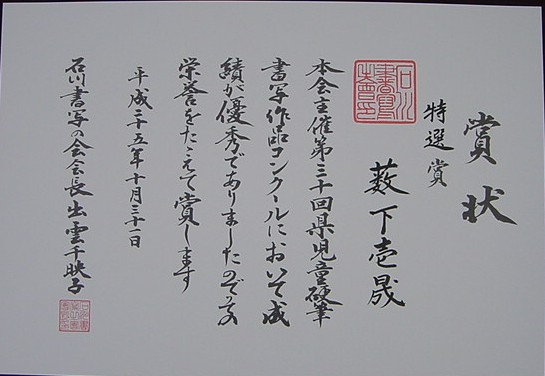 賞状
特選賞
薮下壱晟
本会主催第三十回県児童硬筆
書写作品コンクールにおいて成
績が優秀でありましたのでその
栄誉をたたえて賞します
平成二十五年十月三十一日
石川書写の会会長出雲千映子